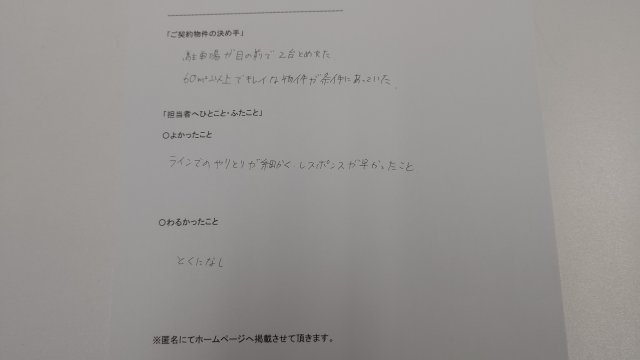 「ご契約物件の決め手」
駐車場が目の前で2台とめれた
60㎡以上でキレイな物件が条件にあっていた.
「担当者へひとこと・ふたこと」
○よかったこと
ラインでのやりとりが細かく、レスポンスが早かったこと
○わるかったこと
とくになし
※匿名にてホームページへ掲載させて頂きます。